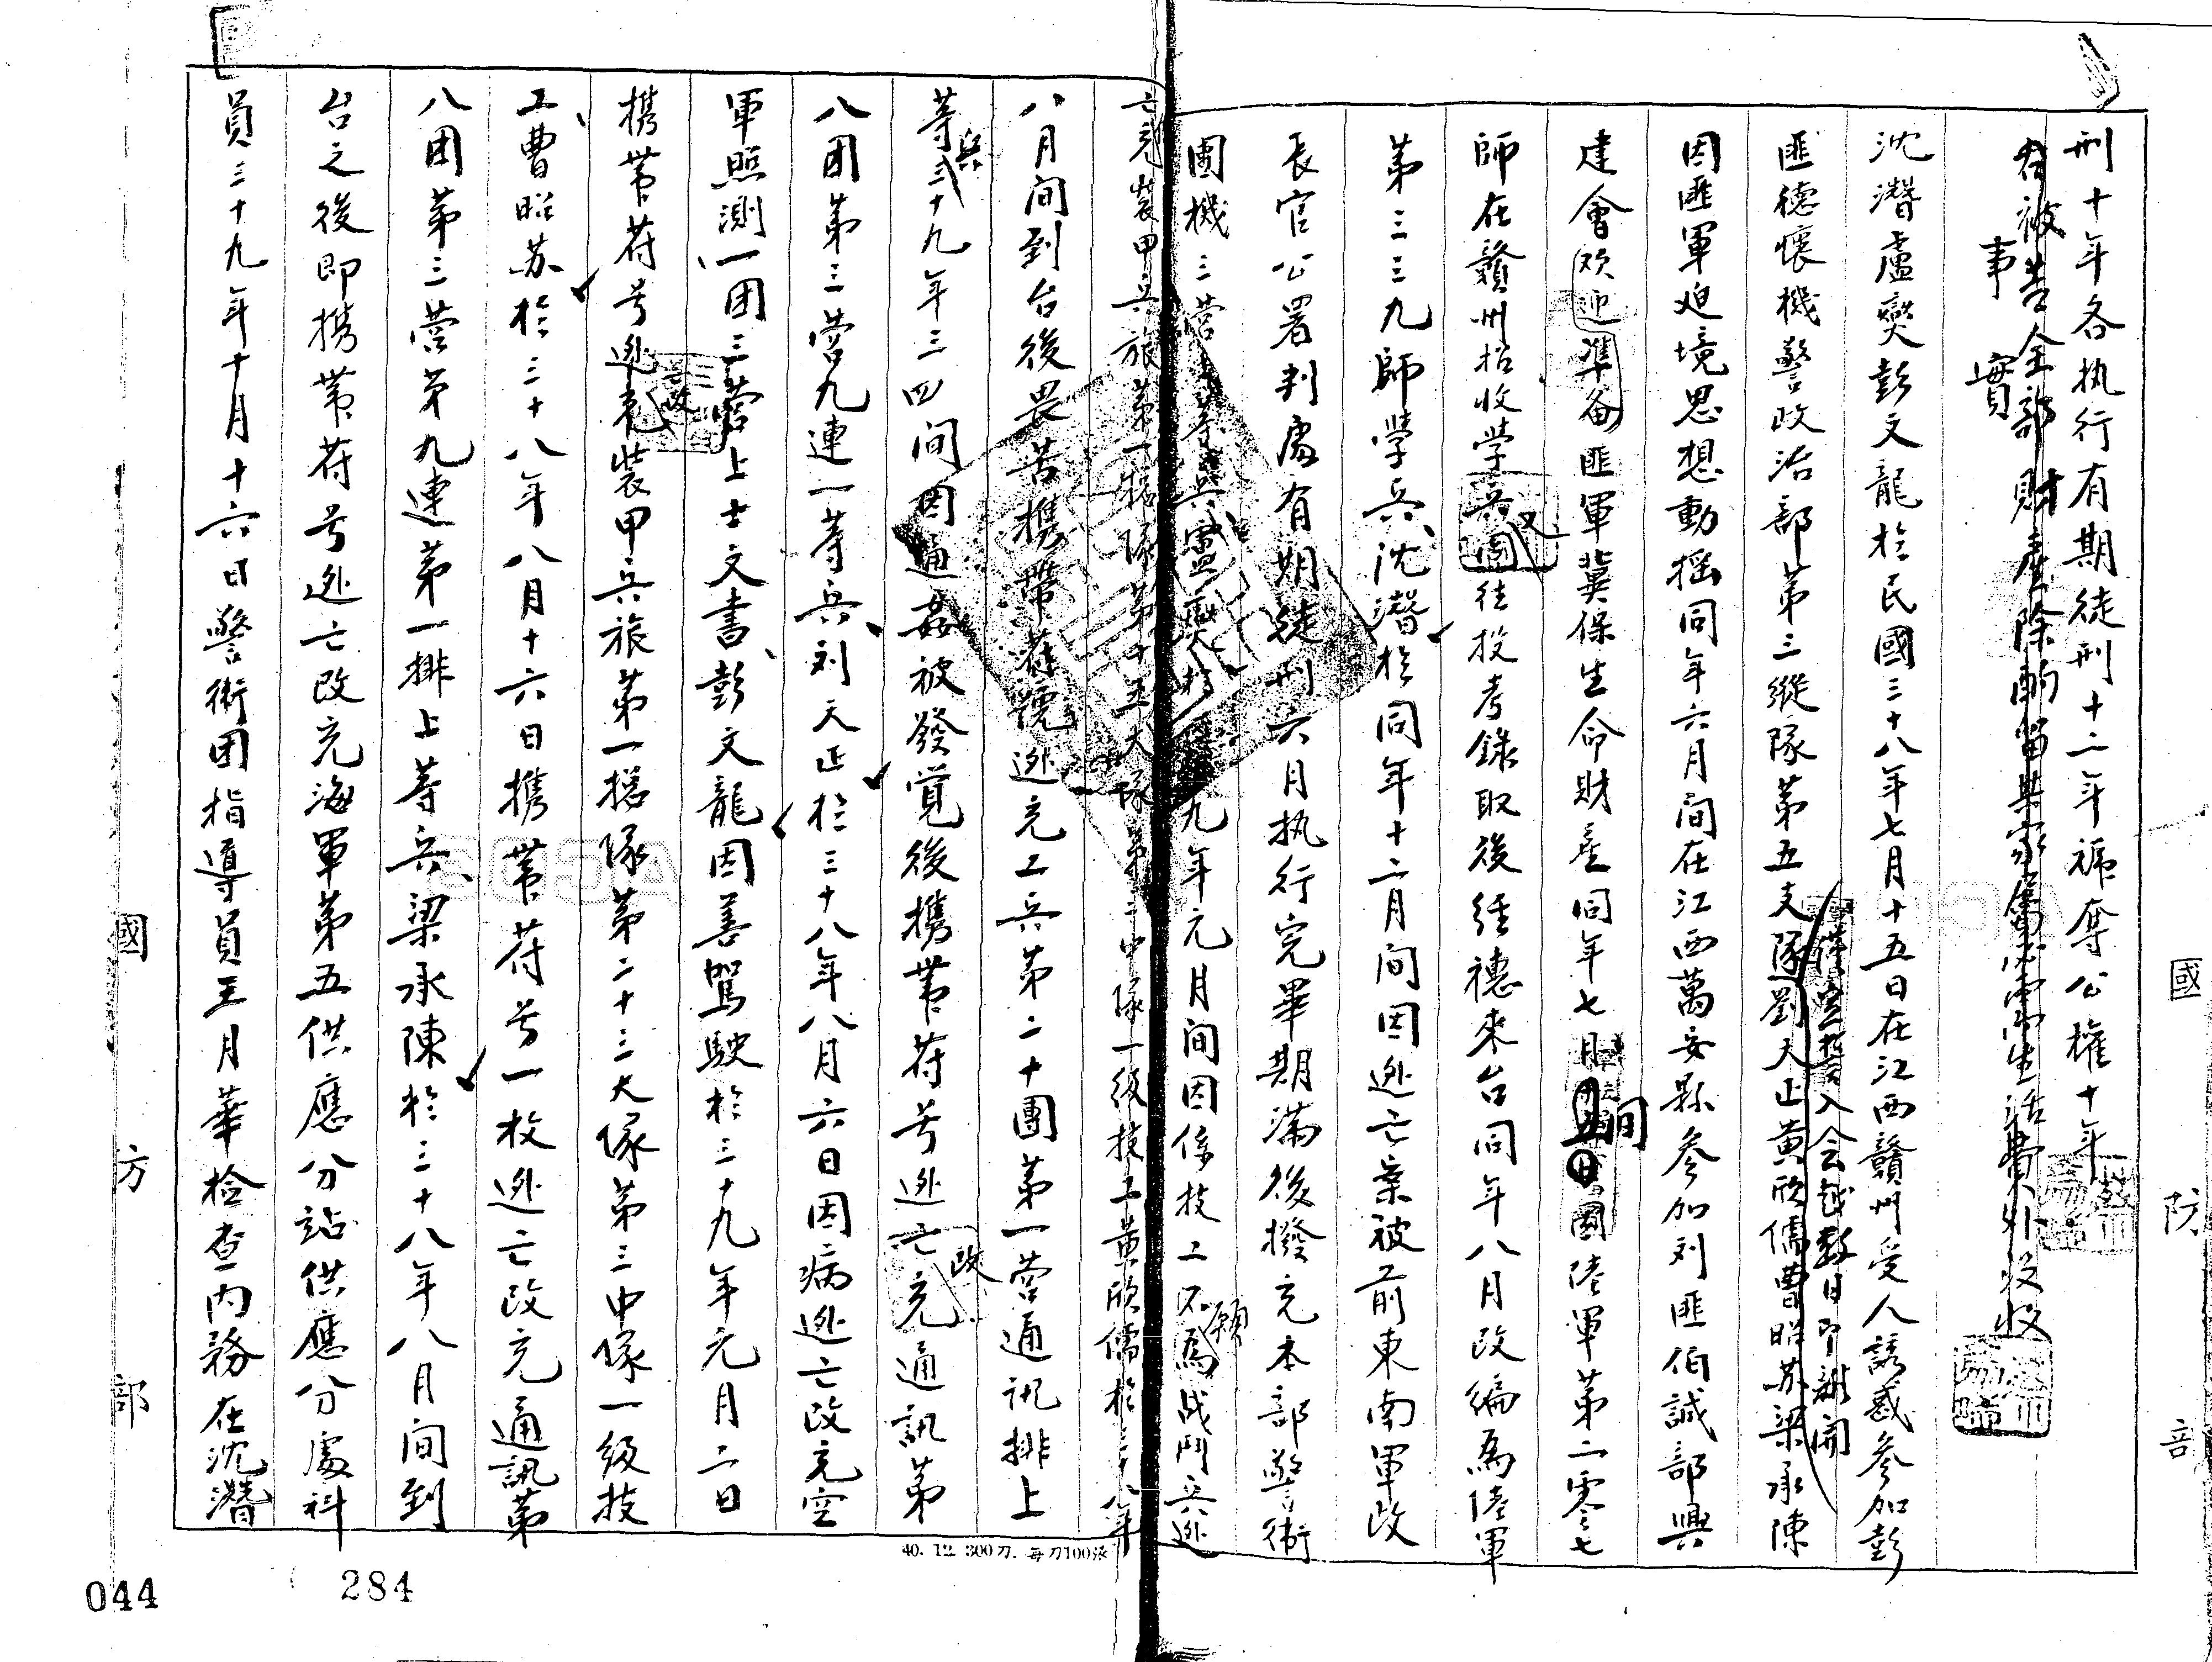 刑十年各执行有期徒刑十二年褫夺公權十年
各被告全部財產除酌留其家屬必需生活費外沒收
事實
沈潛盧燮彭文龍於民國三十八年七月十五日在江西贛州受人誘惑參加彭
匪德懷機警政治部第三縱隊第五支隊劉天正黃欣儒曹昭苏梁承陳
僅宣誓入会越数日即離開
因匪軍迫境思想動摇同年六月间在江西萬安縣參加刘匪伯誠部興
建會欢迎準备匪軍冀保生命財產同年七月间國陸軍第二零七
師在贛州招收學兵又往投考錄取後經穗來台同年八月改編為陸軍
第三三九師學兵沈潛於同年十二月间因逃亡案被前東南軍政
長官公署判處有期徒刑六月执行完畢期滿後撥充本部警衛
團機三營上等兵盧燮於三十九年元月间因係技工不願為战鬥兵逃
亡充裝甲兵旅第一總隊第十五大隊第三中隊一级技工黃欣儒於三十八年
八月间到台後畏苦携帶符號逃充工兵第二十團第一营通訊排上
等兵三十九年三四间因通姦被發覚後携帶符号逃亡改充通訊第
八团第三营九連一等兵刘天正於三十八年八月六日因病逃亡改充空
軍照測一团三营上士文書彭文龍因善駕駛於三十九年元月二日
携带符号逃亡改充裝甲兵旅第一總隊第二十三大隊第三中隊一级技
工曹昭苏於三十八年八月十六日携带符号一枚逃亡改充通訊第
八团第三营第九連第一排上等兵梁承陳於三十八年八月间到
台之後即携带符号逃亡改充海軍第五供應分站供應分處科
員三十九年十月十六日警衛团指導員王月華检查内務在沈潛
國防部
國方部
40. 12. 300刀. 每刀100张
284
044